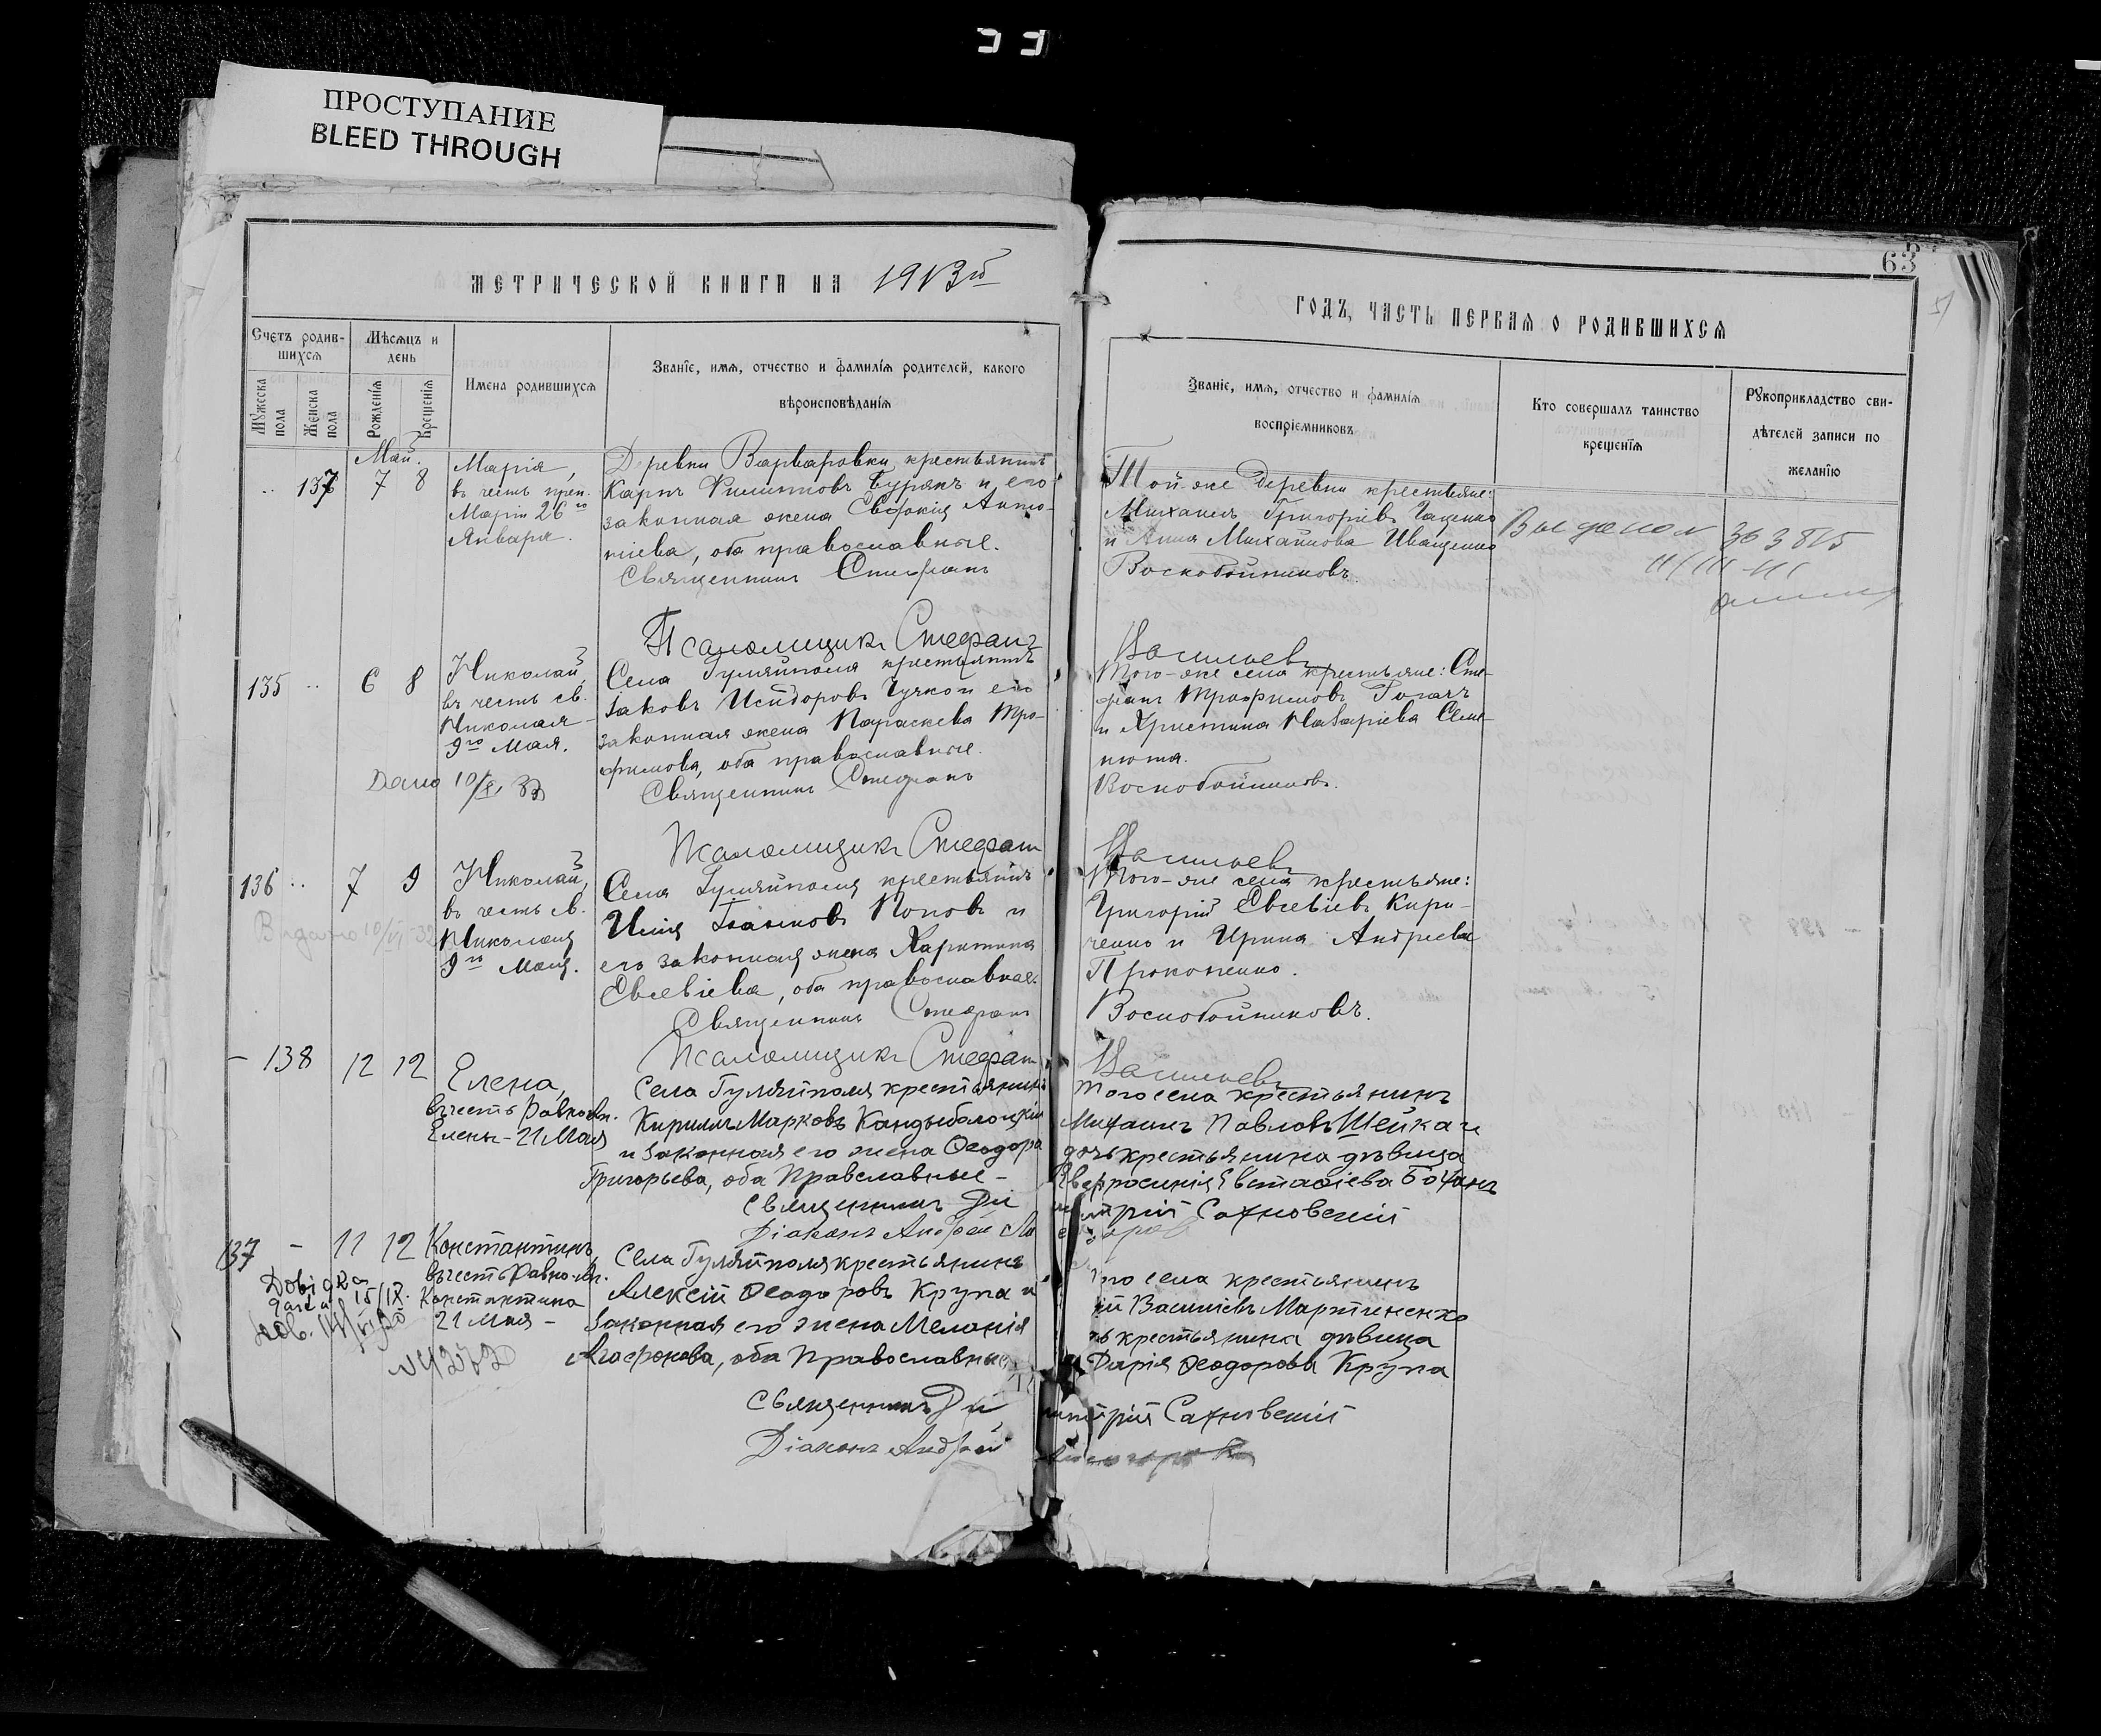 ПРОСТУПАНИЕ
BLEED THROUGH
МЕТРИЧЕСКОЙ КНИГИ НА 1913й
Счетъ родив-
шихся
Мѣсяцъ и
день
Мужеска
пола
Женска
пола
Рожденія
Крещенія
Имена родившихся
Званіе, имя, отчество и фамилія родителей, какого
вѣроисповѣданія
137
Май.
7 8
Марія,
въ честь преп.
Маріи 26го
Января.
Деревни Варваровки, крестьянинъ
Карпъ Филипповъ Бурякъ и его
законная жена Евдокія Анто-
ніева, оба православные.
Священникъ Стефанъ
Псаломщикъ Стефанъ
135
6 8
Николай,
въ честь св.
Николая
9го Мая.
Дано 10/XI 33
Села Гуляйполя крестьянинъ
Іаковъ Исидоровъ и его
законная жена Параскева Тро-
фимова, оба православные.
Священникъ Стефанъ
Псаломщикъ Стефанъ
136
7 9
Николай,
въ честь св.
Николая
9го Мая.
Видано 10/VI 32
Села Гуляйполя крестьянинъ
Илія Іоанновъ Поповъ и
его законная жена Харитина
Евсевіева, оба православные.
Священникъ Стефанъ
Псаломщикъ Стефанъ
- 138
12 12
Елена,
въ честь Равноап.
Елены - 21 Мая
Села Гуляйполя крестьянинъ
Кириллъ Марковъ
и законная его жена Ѳеодора
Григорьева, оба Православные -
Священникъ Ди
Діаконъ Андрей
137 -
11 12
Константинъ,
въ честь Равноап.
Константина
21 Мая -
Села Гуляйполя крестьянинъ
Алексій Ѳеодоровъ Крупа и
законная его жена Меланія
Агафонова, оба Православные
Священникъ Ди
Діаконъ Андрей
63
ГОДЪ, ЧАСТЬ ПЕРВАЯ О РОДИВШИХСЯ
Званіе, имя, отчество и фамилія
воспріемниковъ
Кто совершалъ таинство
крещенія
Рукоприкладство сви-
дѣтелей записи по
желанію
Той-же деревни крестьяне:
Михаилъ Григоріевъ Гаценко
и Анна Михайлова Иващенко
Воскобойниковъ.
363815
Васильевъ
Того-же села крестьяне: Сте-
фанъ Трофимовъ Рогачъ
и Христина Назаріева Семе-
нюта.
Воскобойниковъ.
Васильевъ
Того-же села крестьяне:
Григорій Евсевіевъ Кири-
ченко и Ирина Андреева
Прокопенко.
Воскобойниковъ.
Васильевъ
Того села крестьянинъ
Михаилъ Павловъ Шейка и
дочь крестьянина дѣвица
Евфросинія Евстафіева Боханъ
митрій Сахновскій
того села крестьянинъ
ій Василіевъ Мартыненко
чь крестьянина дѣвица
Дарія Ѳеодорова Крупа
митрій Сахновскій